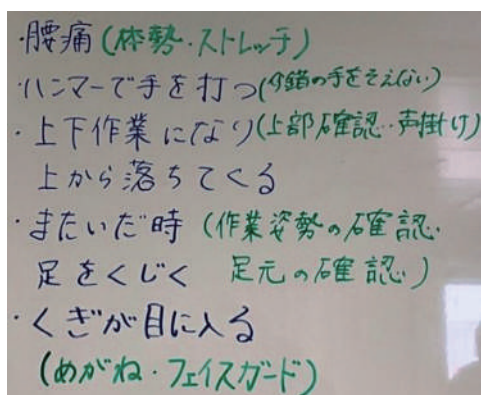 ・腰痛(体勢・ストレッチ)
・ハンマーで手を打つ(の手をそえない)
・上下作業になり(上部確認・声掛け)
上から落ちてくる
・またいだ時(作業姿勢の確認・
足をくじく 足元の確認)
・くぎが目に入る
(めがね・フェイスガード)